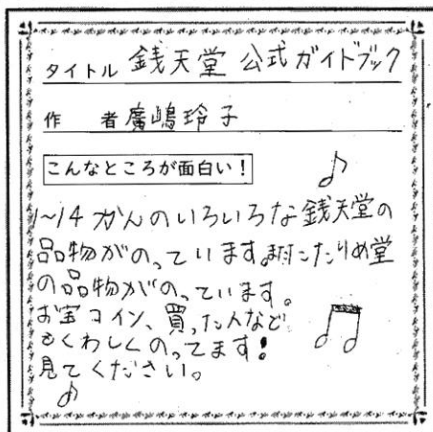 タイトル 銭天堂 公式ガイドブック
作者 廣嶋玲子
こんなところが面白い!
1~14かんのいろいろな銭天堂の
品物がのっています。またたりめ堂
の品物がのっています。
お宝コイン、買った人など
もくわしくのってます!
見てください。